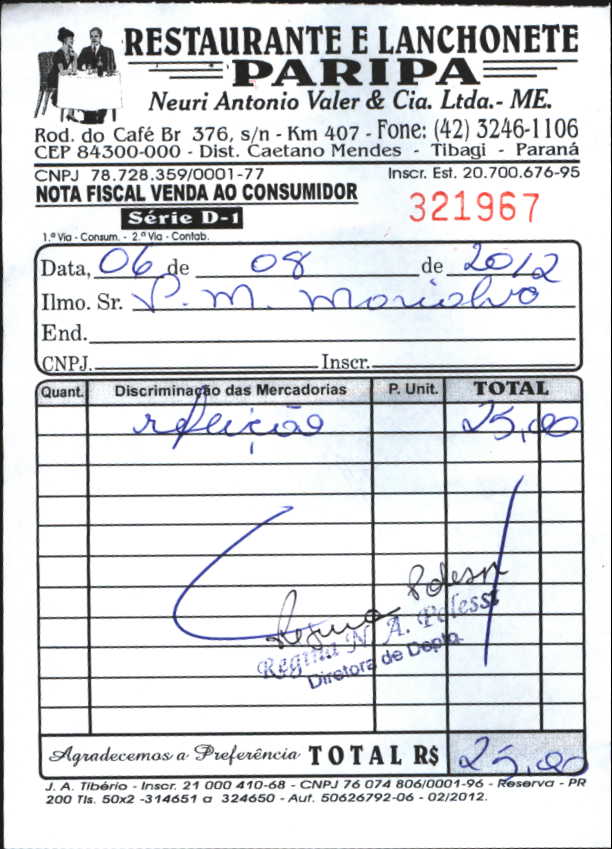 RESTAURANTE E LANCHONETE
PARIPA
Neuri Antonio Valer & Cia. Ltda.- ME.
Rod. do Café Br 376, s/n - Km 407 - Fone: (42) 3246-1106
CEP 84300-000 - Dist. Caetano Mendes - Tibagi - Paraná
CNPJ 78.728.359/0001-77 Inscr. Est. 20.700.676-95
NOTA FISCAL VENDA AO CONSUMIDOR
Série D-1 321967
1.ª Via - Consum. - 2.ª Via - Contab.
Data, 06 de 08 de 2012
Ilmo. Sr. P. M.
End.
CNPJ. Inscr.
Quant. Discriminação das Mercadorias P. Unit. TOTAL
refeição 25,00
Regina Polessi
Regina N. A. Polessi
Diretora de Depto.
Agradecemos a Preferência TOTAL R$ 25,00
J. A. Tibério - Inscr. 21 000 410-68 - CNPJ 76 074 806/0001-96 - Reserva - PR
200 Tls. 50x2 -314651 a 324650 - Aut. 50626792-06 - 02/2012.